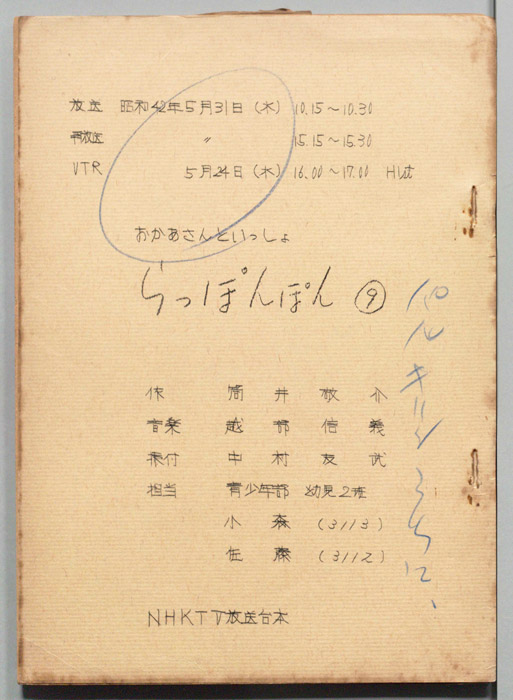 放送 昭和42年5月31日(木) 10.15〜10.30
再放送 〃 15.15〜15.30
VTR 5月24日(木) 16.00〜17.00 Hst
おかあさんといっしょ
らっぽんぽん ⑨
作 筒井敬介
音楽 越部信義
振付 中村友武
担当 青少年部 幼児2班
小森 (3113)
佐藤 (3112)
NHKTV放送台本